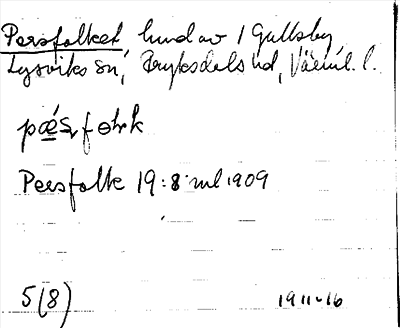 Persfolket, hmd av 1 Gullsby
Lysviks sn, Fryksdals hd, Värml. l.
Peesfolk 19:8 ml 1909
5(8) 1911-16